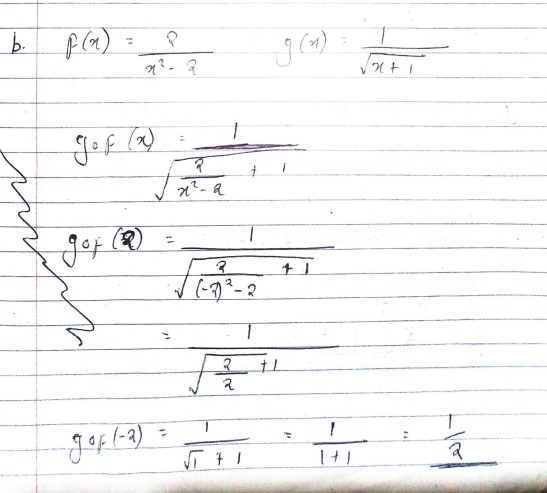 b. f(x) = 2/(x² - 2) g(x) = 1/√(x + 1)
gof (x) = 1/√(2/(x² - 2) + 1)
gof (2) = 1/√(2/((-2)² - 2) + 1)
= 1/√(2/2 + 1)
gof (-2) = 1/(√1 + 1) = 1/(1 + 1) = 1/2